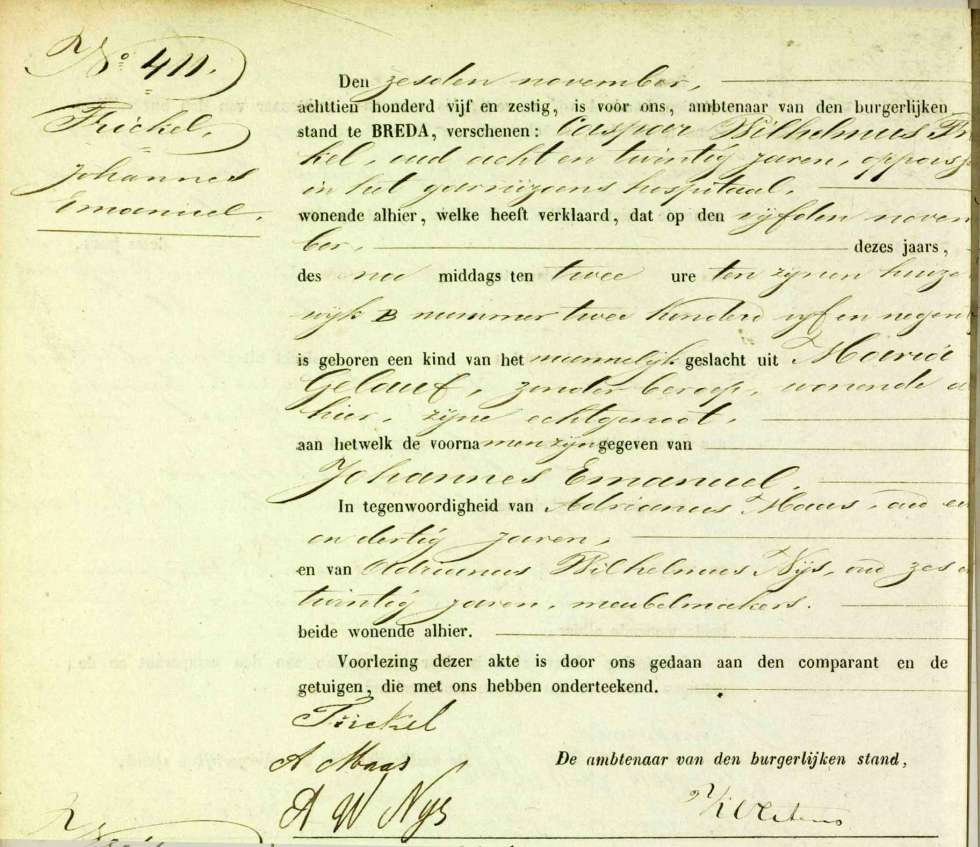 N° 411.
Frickel,
Johannes
Emanuel.
Den zesden november,
achttien honderd vijf en zestig, is voor ons, ambtenaar van den burgerlijken
stand te BREDA, verschenen: Caspar Wilhelmus Fric
kel, oud acht en twintig jaren, oppasser
in het garnizoens hospitaal,
wonende alhier, welke heeft verklaard, dat op den vijfden novem
ber, dezes jaars,
des na middags ten twee ure ten zijnen huize
wijk B nummer twee honderd vijf en negen
is geboren een kind van het mannelijk geslacht uit Maria
Gelauf, zonder beroep, wonende al
hier, zijne echtgenoot,
aan hetwelk de voornamen zijn gegeven van
Johannes Emanuel.
In tegenwoordigheid van Adrianus Maas, oud een
en dertig jaren,
en van Adrianus Wilhelmus Nijs, oud zes en
twintig jaren, meubelmakers.
beide wonende alhier.
Voorlezing dezer akte is door ons gedaan aan den comparant en de
getuigen, die met ons hebben onderteekend.
Frickel
A Maas
De ambtenaar van den burgerlijken stand,
A W Nijs